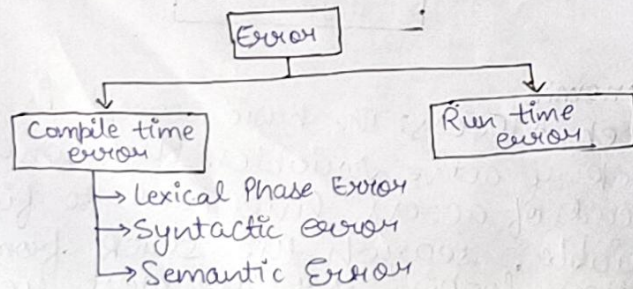 Error
Compile time
error
Run time
error
Lexical Phase Error
Syntactic error
Semantic Error